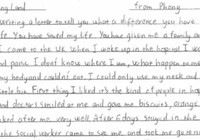 ing Land from Phong
writing a letter to tell you what a difference you have
life. You have saved my life. You have given me a family an
I came to the UK when I woke up in the hospital I was
and panic. I dont know where I am, what happen on me
my body and couldnt exit. I could only use my neck and
little bit. First thing I liked it's the kind of people in hosp
and doctors smiled at me and gave me biscuits, orange
looked after me very well. After 6 days stayed in the
the social worker came to see me, and took me go to m